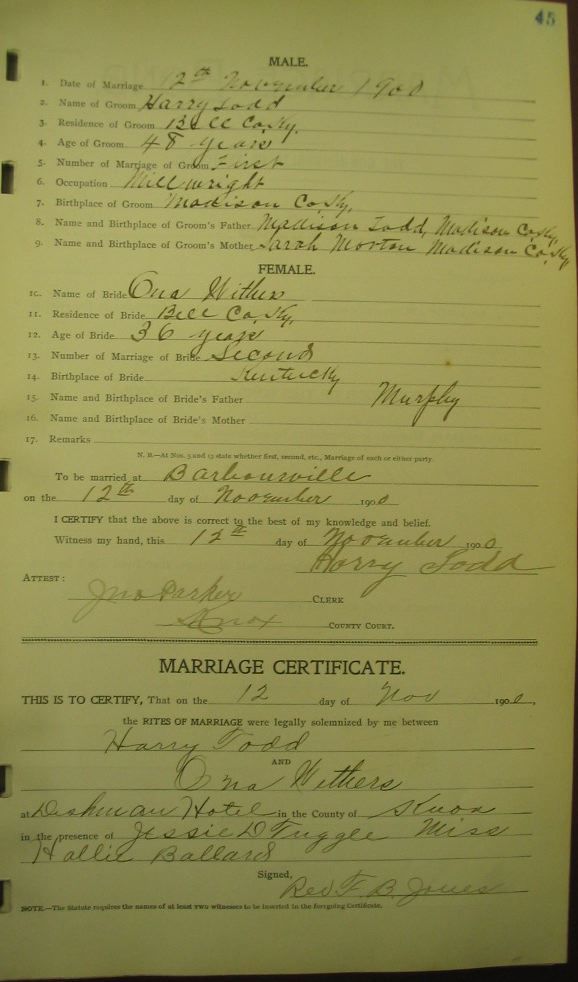 45
MALE.
1. Date of Marriage 12th November 1900
2. Name of Groom Harry Todd
3. Residence of Groom Bell Co. Ky.
4. Age of Groom 48 years
5. Number of Marriage of Groom First
6. Occupation Millwright
7. Birthplace of Groom Madison Co. Ky.
8. Name and Birthplace of Groom's Father Madison Todd, Madison Co. Ky.
9. Name and Birthplace of Groom's Mother Sarah Morton Madison Co. Ky.
FEMALE.
10. Name of Bride Ona Withers
11. Residence of Bride Bell Co. Ky.
12. Age of Bride 36 years
13. Number of Marriage of Bride Second
14. Birthplace of Bride Kentucky
15. Name and Birthplace of Bride's Father Murphy
16. Name and Birthplace of Bride's Mother
17. Remarks
N. B.—At Nos. 5 and 13 state whether first, second, etc., Marriage of each or either party.
To be married at Barbourville
on the 12th day of November 1900
I CERTIFY that the above is correct to the best of my knowledge and belief.
Witness my hand, this 12th day of November 1900
Harry Todd
ATTEST:
Jno Parker CLERK
Knox COUNTY COURT.
MARRIAGE CERTIFICATE.
THIS IS TO CERTIFY, That on the 12 day of Nov 1900,
the RITES OF MARRIAGE were legally solemnized by me between
Harry Todd
AND
Ona Withers
at Dishman Hotel in the County of Knox
in the presence of Jessie D Tuggle Miss
Hallie Ballard
Signed,
Rev F. B. Jones
NOTE.—The Statute requires the names of at least two witnesses to be inserted in the foregoing Certificate.